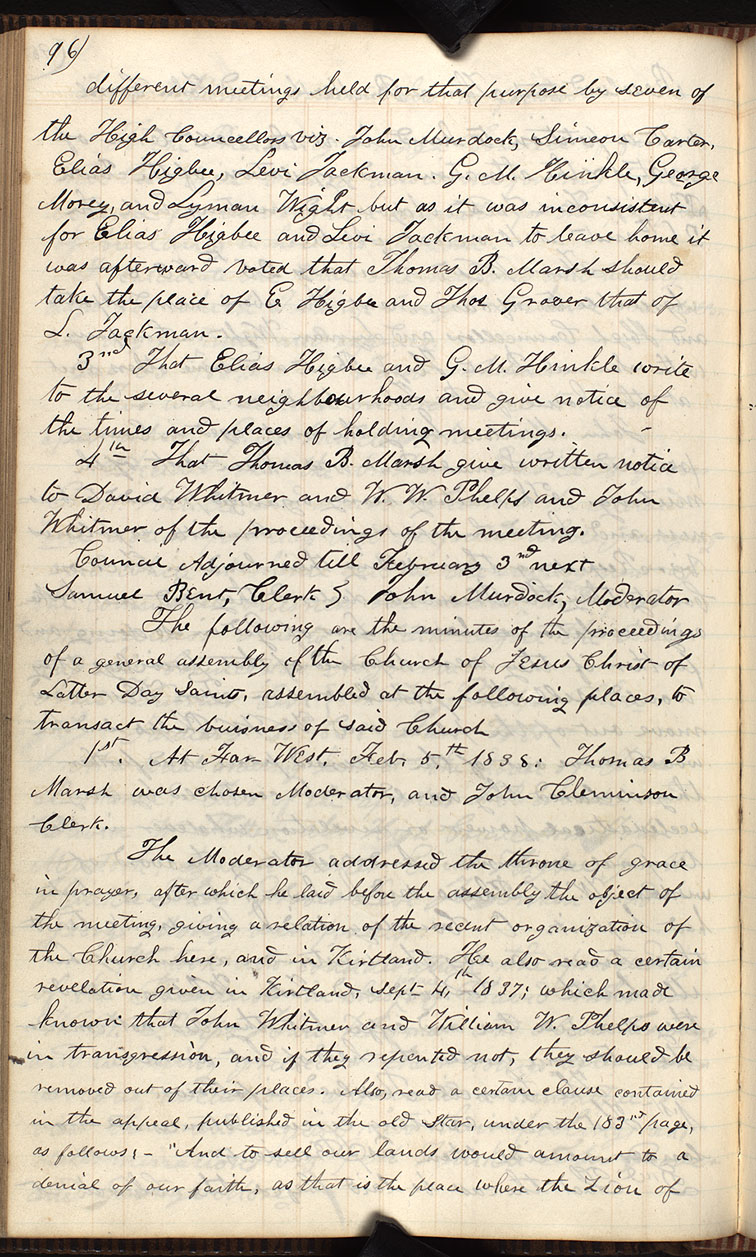 96)
different meetings held for that purpose by seven of
the High Councellors viz. John Murdock, Simeon Carter,
Elias Higbee, Levi Jackman. G. M. Hinkle, George
Morey, and Lyman Wight but as it was inconsistent
for Elias Higbee and Levi Jackman to leave home it
was afterward voted that Thomas B. Marsh should
take the place of E Higbee and Thos Grover that of
L. Jackman.
3nd That Elias Higbee and G. M. Hinkle write
to the several neighbourhoods and give notice of
the times and places of holding meetings.
4th That Thomas B. Marsh give written notice
to David Whitmer and W. W. Phelps and John
Whitmer of the proceedings of the meeting.
Council Adjourned till February 3nd next
Samuel Bent, Clerk } John Murdock, Moderator
The following are the minutes of the proceedings
of a general assembly of the Church of Jesus Christ of
Latter Day Saints, assembled at the following places, to
transact the buisness of said Church
1st. At Far West, Feb. 5,th 1838: Thomas B
Marsh was chosen Moderator, and John Cleminson
Clerk.
The Moderator addressed the throne of grace
in prayer, after which he laid before the assembly the object of
the meeting, giving a relation of the recent organization of
the Church here, and in Kirtland. He also read a certain
revelation given in Kirtland, Sept 4,th 1837; which made
known that John Whitmer and William W. Phelps were
in transgression, and if they repented not, they should be
removed out of their places. Also, read a certain clause contained
in the appeal, published in the old Star, under the 183nd page,
as follows;- "And to sell our lands would amount to a
denial of our faith, as that is the place where the Zion of